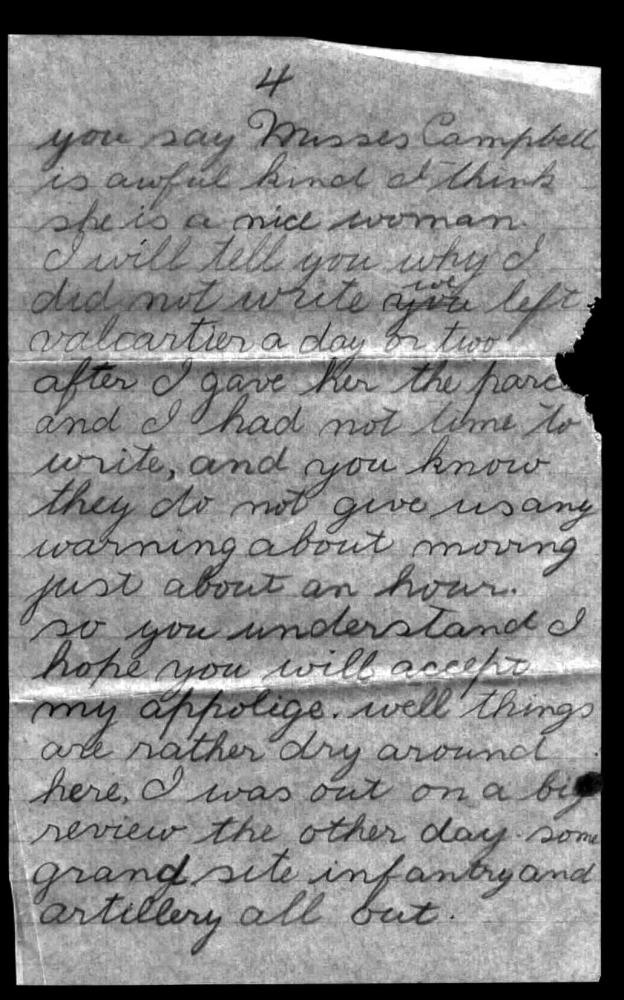 4
you say Misses Campbell
is awful kind I think
she is a nice woman.
I will tell you why I
did not write you we left
valcartier a day or two
after I gave her the parc
and I had not time to
write, and you know
they do not give us any
warning about moving
just about an hour.
so you understand I
hope you will accept
my appolige. well things
are rather dry around
here. I was out on a big
review the other day. some
grand site infantry and
artillery all out.